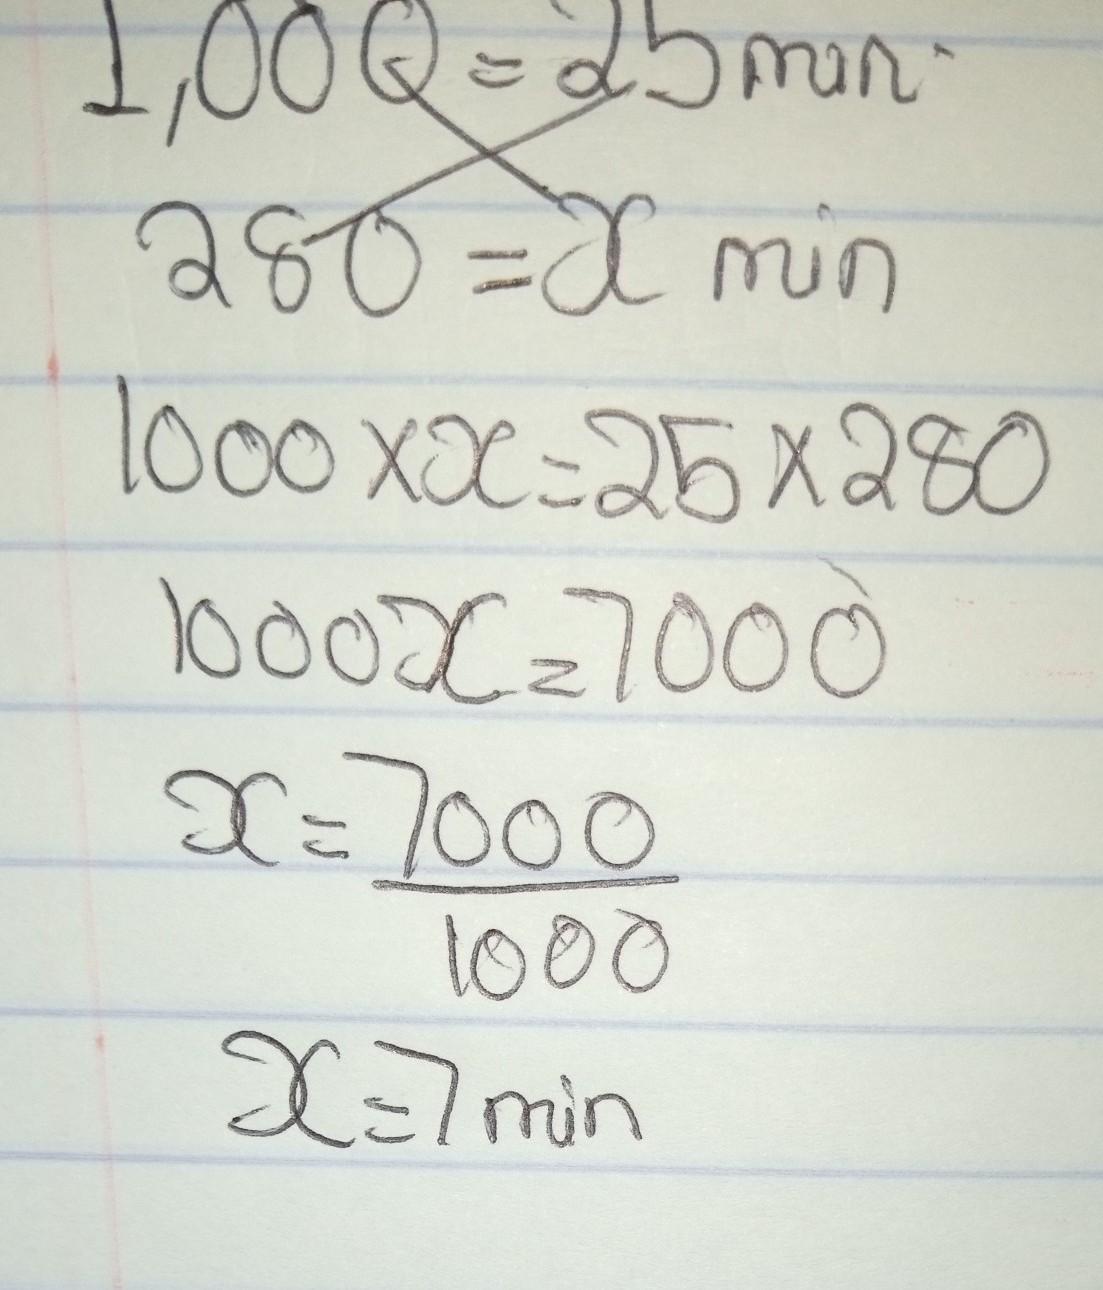 1,000 = 25 min.
280 = x min
1000 × x = 25 × 280
1000x = 7000
x = 7000
1000
x = 7 min